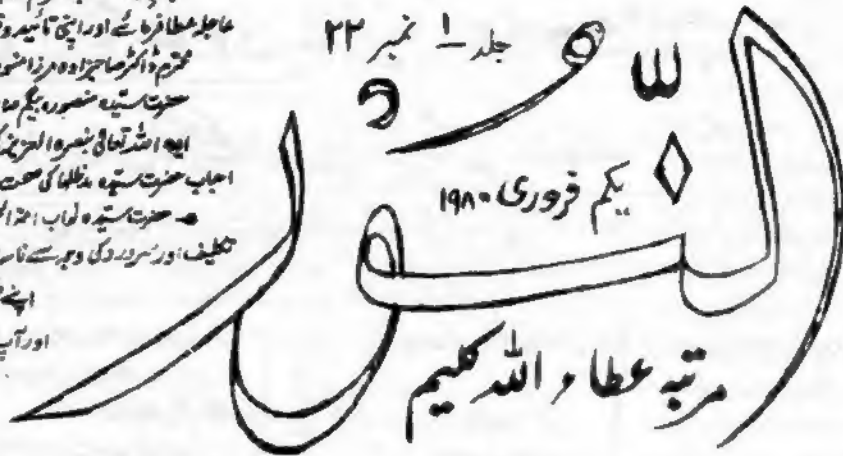 جلد ۱ نمبر ۲۲
النور
یکم فروری ۱۹۸۰
مرتبہ عطاء اللہ کلیم
عاجلہ عطا فرمائے اور اپنی تائید و
محترم ڈاکٹر صاحبزادہ مرزا
حضرت سیدہ منصورہ بیگم
ایدہ اللہ تعالیٰ بنصرہ العزیز
احباب حضرت سیدہ مدظلہا کی صحت
حضرت سیدہ نواب
تکلیف اور سردرد کی وجہ سے
اپنے
اور آپ